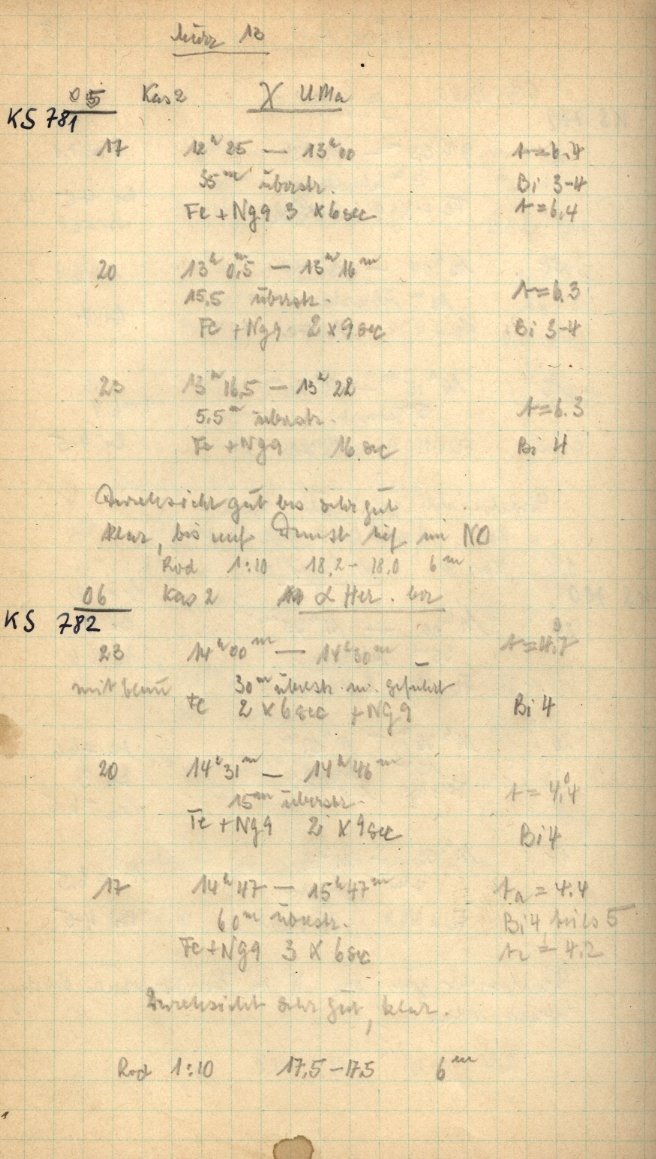 März 13
05 Kas 2 χ UMa
KS 781
17 12h 25 — 13h 00 t=6.4
35m überstr. Bi 3-4
Fe + Ng9 3 × 6 sec t=6,4
20 13h 0,5m — 13h 16m
15,5 überstr. t=6.3
Fe + Ng9 2 × 9 sec Bi 3-4
23 13h 16,5 — 13h 22
5,5m überstr. t=6.3
Fe + Ng9 16 sec Bi 4
Durchsicht gut bis sehr gut
klar, bis auf Dunst tief im NO
Rod 1:10 18,2 – 18,0 6m
06 Kas 2 α Her. bor
KS 782
23 14h 00m — 14h 30m
mit blau 30m überstr. m. geführt
Fe 2 × 6 sec + Ng9 Bi 4
20 14h 31m — 14h 46m
15m überstr. t = 4,4
Fe + Ng9 2 × 9 sec Bi 4
17 14h 47 — 15h 47m ta = 4.4
60m überstr. Bi 4 bis 5
Fe + Ng9 3 × 6 sec = 4.2
Durchsicht sehr gut, klar.
Rod 1:10 17,5 – 17,5 6m